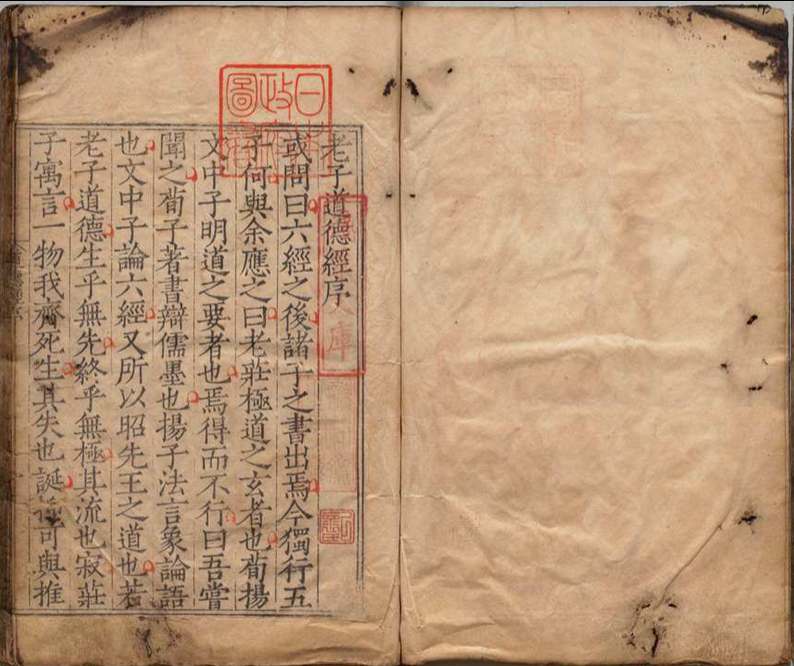 老子道德經序
或問曰六經之後諸子之書出焉今獨行五
子何與余應之曰老莊極道之玄者也荀揚
文中子明道之要者也焉得而不行曰吾嘗
聞之荀子著書辯儒墨也揚子法言象論語
也文中子論六經又所以昭先王之道也若
老子道德生乎無先終乎無極其流也寂莊
子寓言一物我齊死生其失也誕 可與推
日本政府圖書
文庫